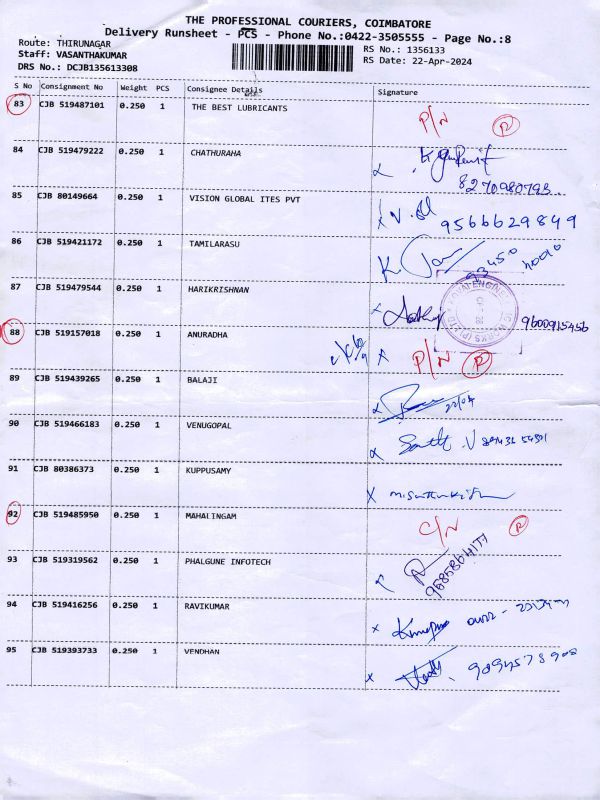 THE PROFESSIONAL COURIERS, COIMBATORE
Delivery Runsheet - PCS - Phone No.:0422-3505555 - Page No.:8
Route: THIRUNAGAR
Staff: VASANTHAKUMAR
DRS No.: DCJB135613308
RS No.: 1356133
RS Date: 22-Apr-2024
S No Consignment No Weight PCS Consignee Details Signature
83 CJB 519487101 0.250 1 THE BEST LUBRICANTS P/N R
84 CJB 519479222 0.250 1 CHATHURAHA
8270980793
85 CJB 80149664 0.250 1 VISION GLOBAL ITES PVT
9566629849
86 CJB 519421172 0.250 1 TAMILARASU
87 CJB 519479544 0.250 1 HARIKRISHNAN
9600915456
88 CJB 519157018 0.250 1 ANURADHA P/N R
89 CJB 519439265 0.250 1 BALAJI
22/04
90 CJB 519466183 0.250 1 VENUGOPAL
91 CJB 80386373 0.250 1 KUPPUSAMY
92 CJB 519485950 0.250 1 MAHALINGAM C/N R
93 CJB 519319562 0.250 1 PHALGUNE INFOTECH
94 CJB 519416256 0.250 1 RAVIKUMAR
95 CJB 519393733 0.250 1 VENDHAN